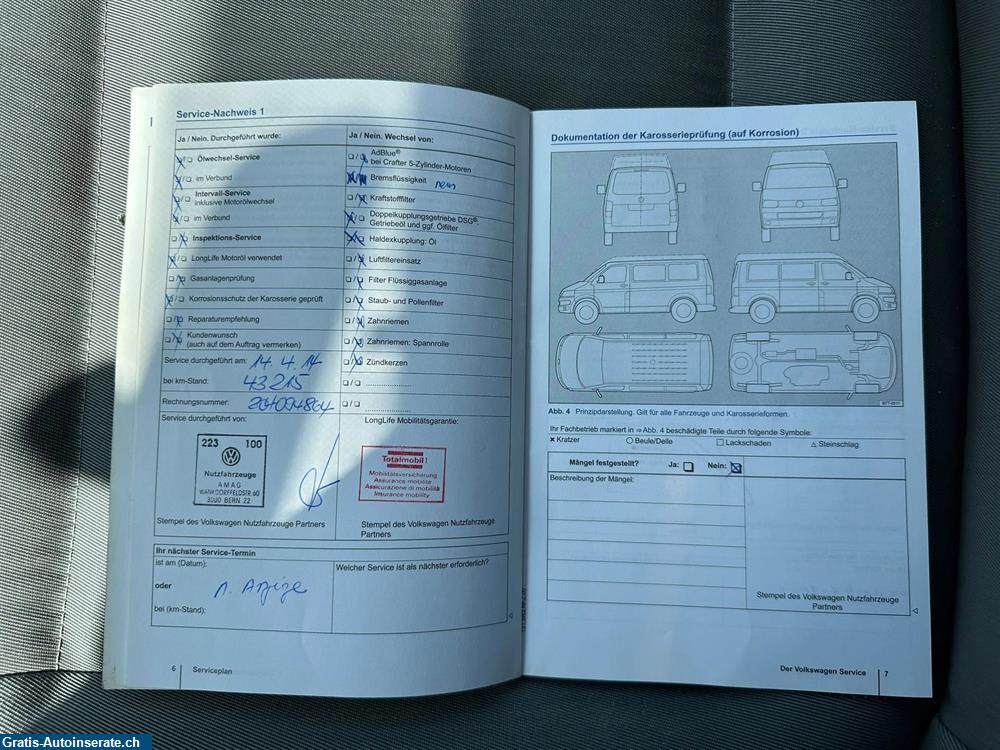 Service-Nachweis 1
Ja / Nein. Durchgeführt wurde:
Ölwechsel-Service
im Verbund
Intervall-Service
inklusive Motorölwechsel
im Verbund
Inspektions-Service
LongLife Motoröl verwendet
Gasanlagenprüfung
Korrosionsschutz der Karosserie geprüft
Reparaturempfehlung
Kundenwunsch
(auch auf dem Auftrag vermerken)
Service durchgeführt am: 14.4.14
bei km-Stand: 43215
Rechnungsnummer:
Service durchgeführt von:
223 100
Nutzfahrzeuge
AMAG
WANKDORFFELDSTR.60
3000 BERN 22
Stempel des Volkswagen Nutzfahrzeuge Partners
Ja / Nein. Wechsel von:
AdBlue®
bei Crafter 5-Zylinder-Motoren
Bremsflüssigkeit nein
Kraftstofffilter
Doppelkupplungsgetriebe DSG®:
Getriebeöl und ggf. Ölfilter
Haldexkupplung: Öl
Luftfiltereinsatz
Filter Flüssiggasanlage
Staub- und Pollenfilter
Zahnriemen
Zahnriemen: Spannrolle
Zündkerzen
LongLife Mobilitätsgarantie:
Totalmobil!
Mobilitätsversicherung
Assurance mobilité
Assicurazione di mobilità
Insurance mobility
Stempel des Volkswagen Nutzfahrzeuge
Partners
Ihr nächster Service-Termin
ist am (Datum):
oder
bei (km-Stand):
n. Anzeige
Welcher Service ist als nächster erforderlich?
6 Serviceplan
Dokumentation der Karosserieprüfung (auf Korrosion)
Abb. 4 Prinzipdarstellung. Gilt für alle Fahrzeuge und Karosserieformen.
Ihr Fachbetrieb markiert in ⇒ Abb. 4 beschädigte Teile durch folgende Symbole:
× Kratzer ○ Beule/Delle □ Lackschaden △ Steinschlag
Mängel festgestellt? Ja: Nein:
Beschreibung der Mängel:
Stempel des Volkswagen Nutzfahrzeuge
Partners
Der Volkswagen Service 7
Gratis-Autoinserate.ch